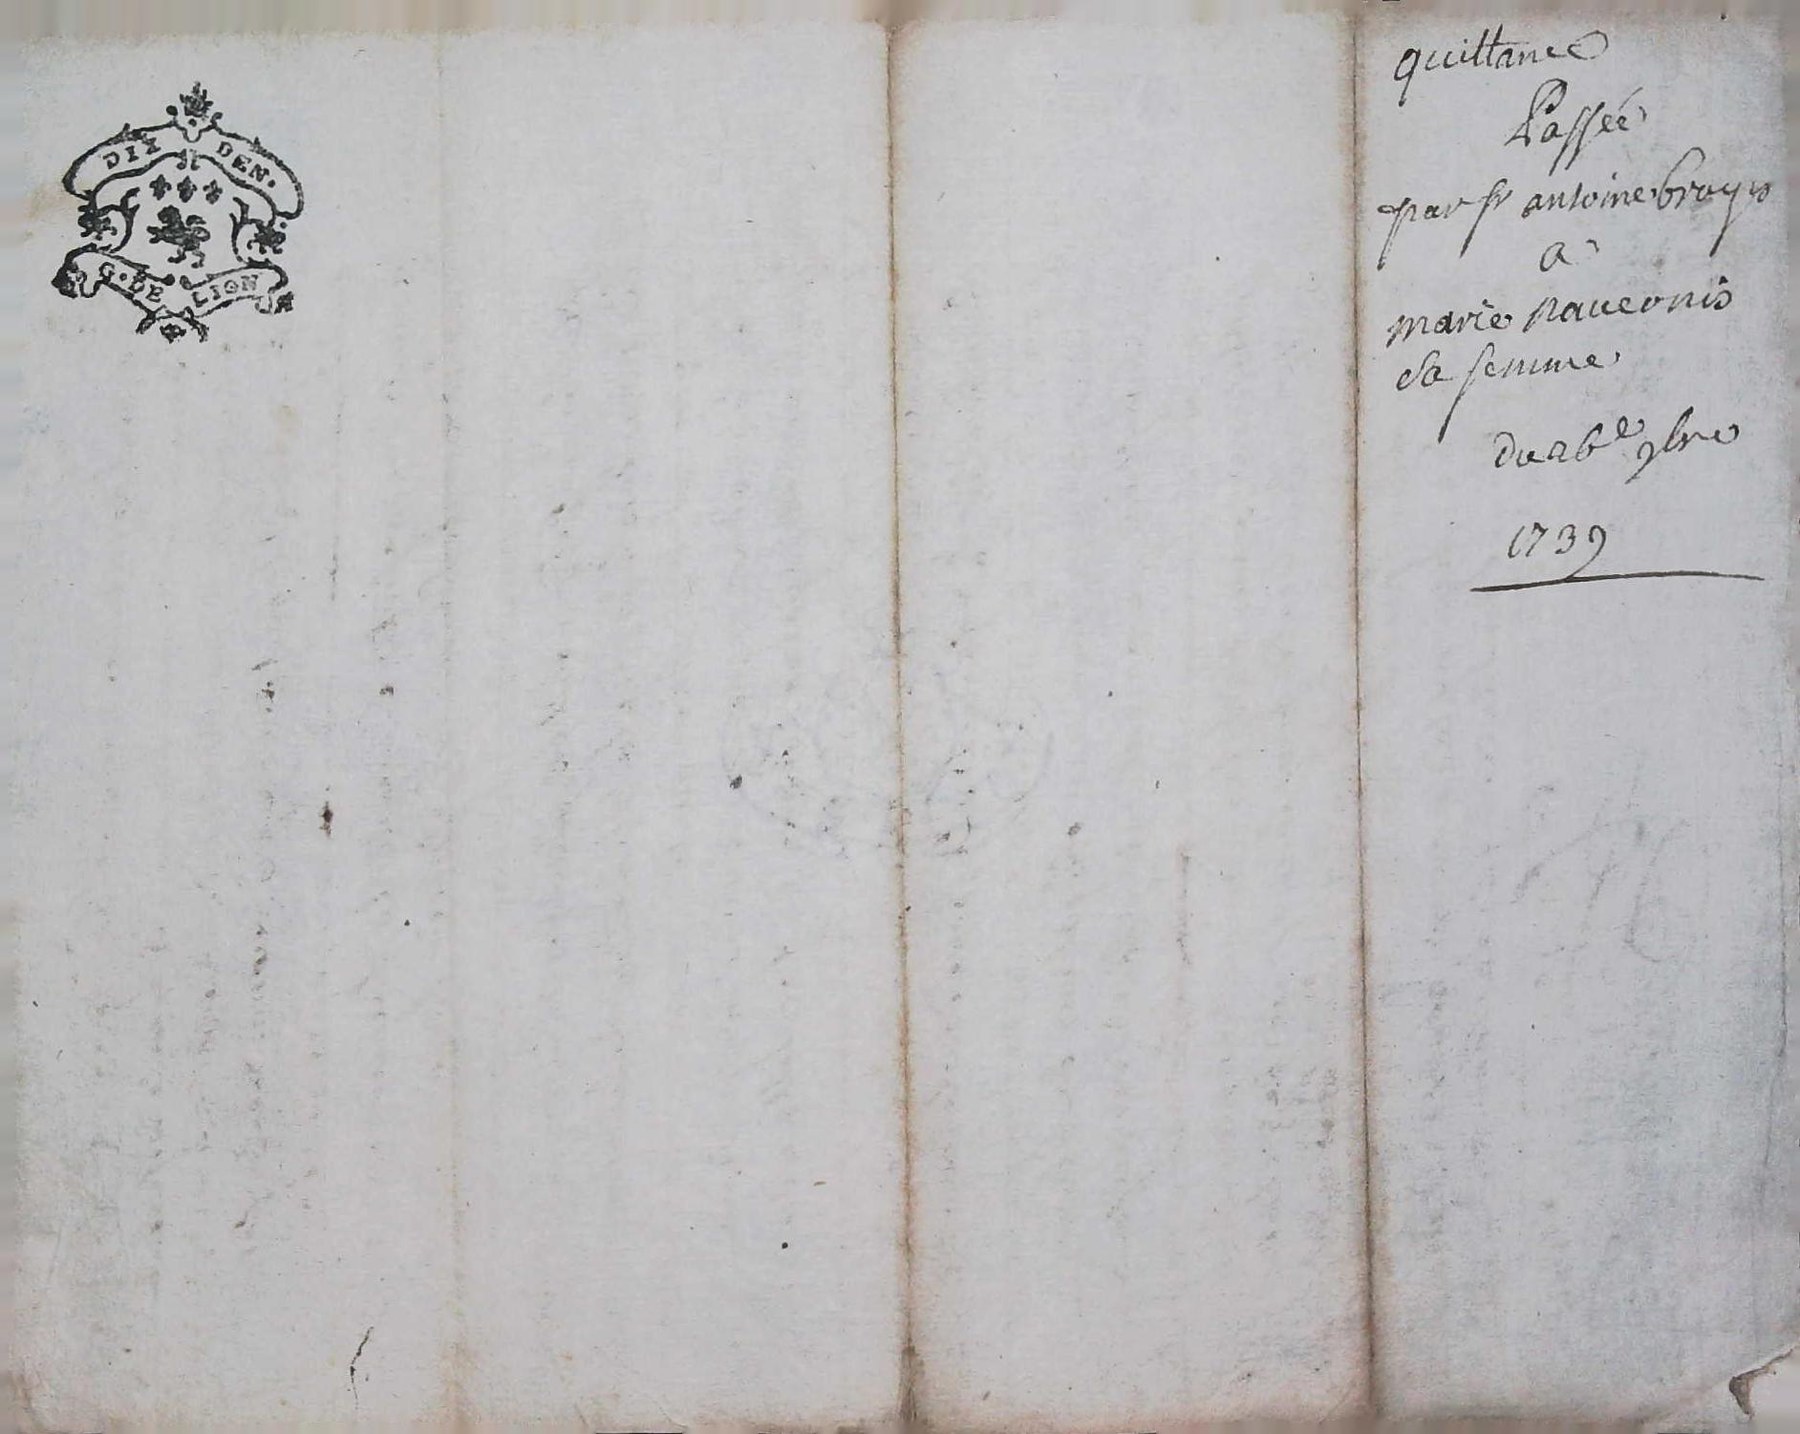 DIX DEN.
G. DE LION
quittance
Passée
par sr antoine broys
a
marie paueonis
sa femme
du 26e 9bre
1739